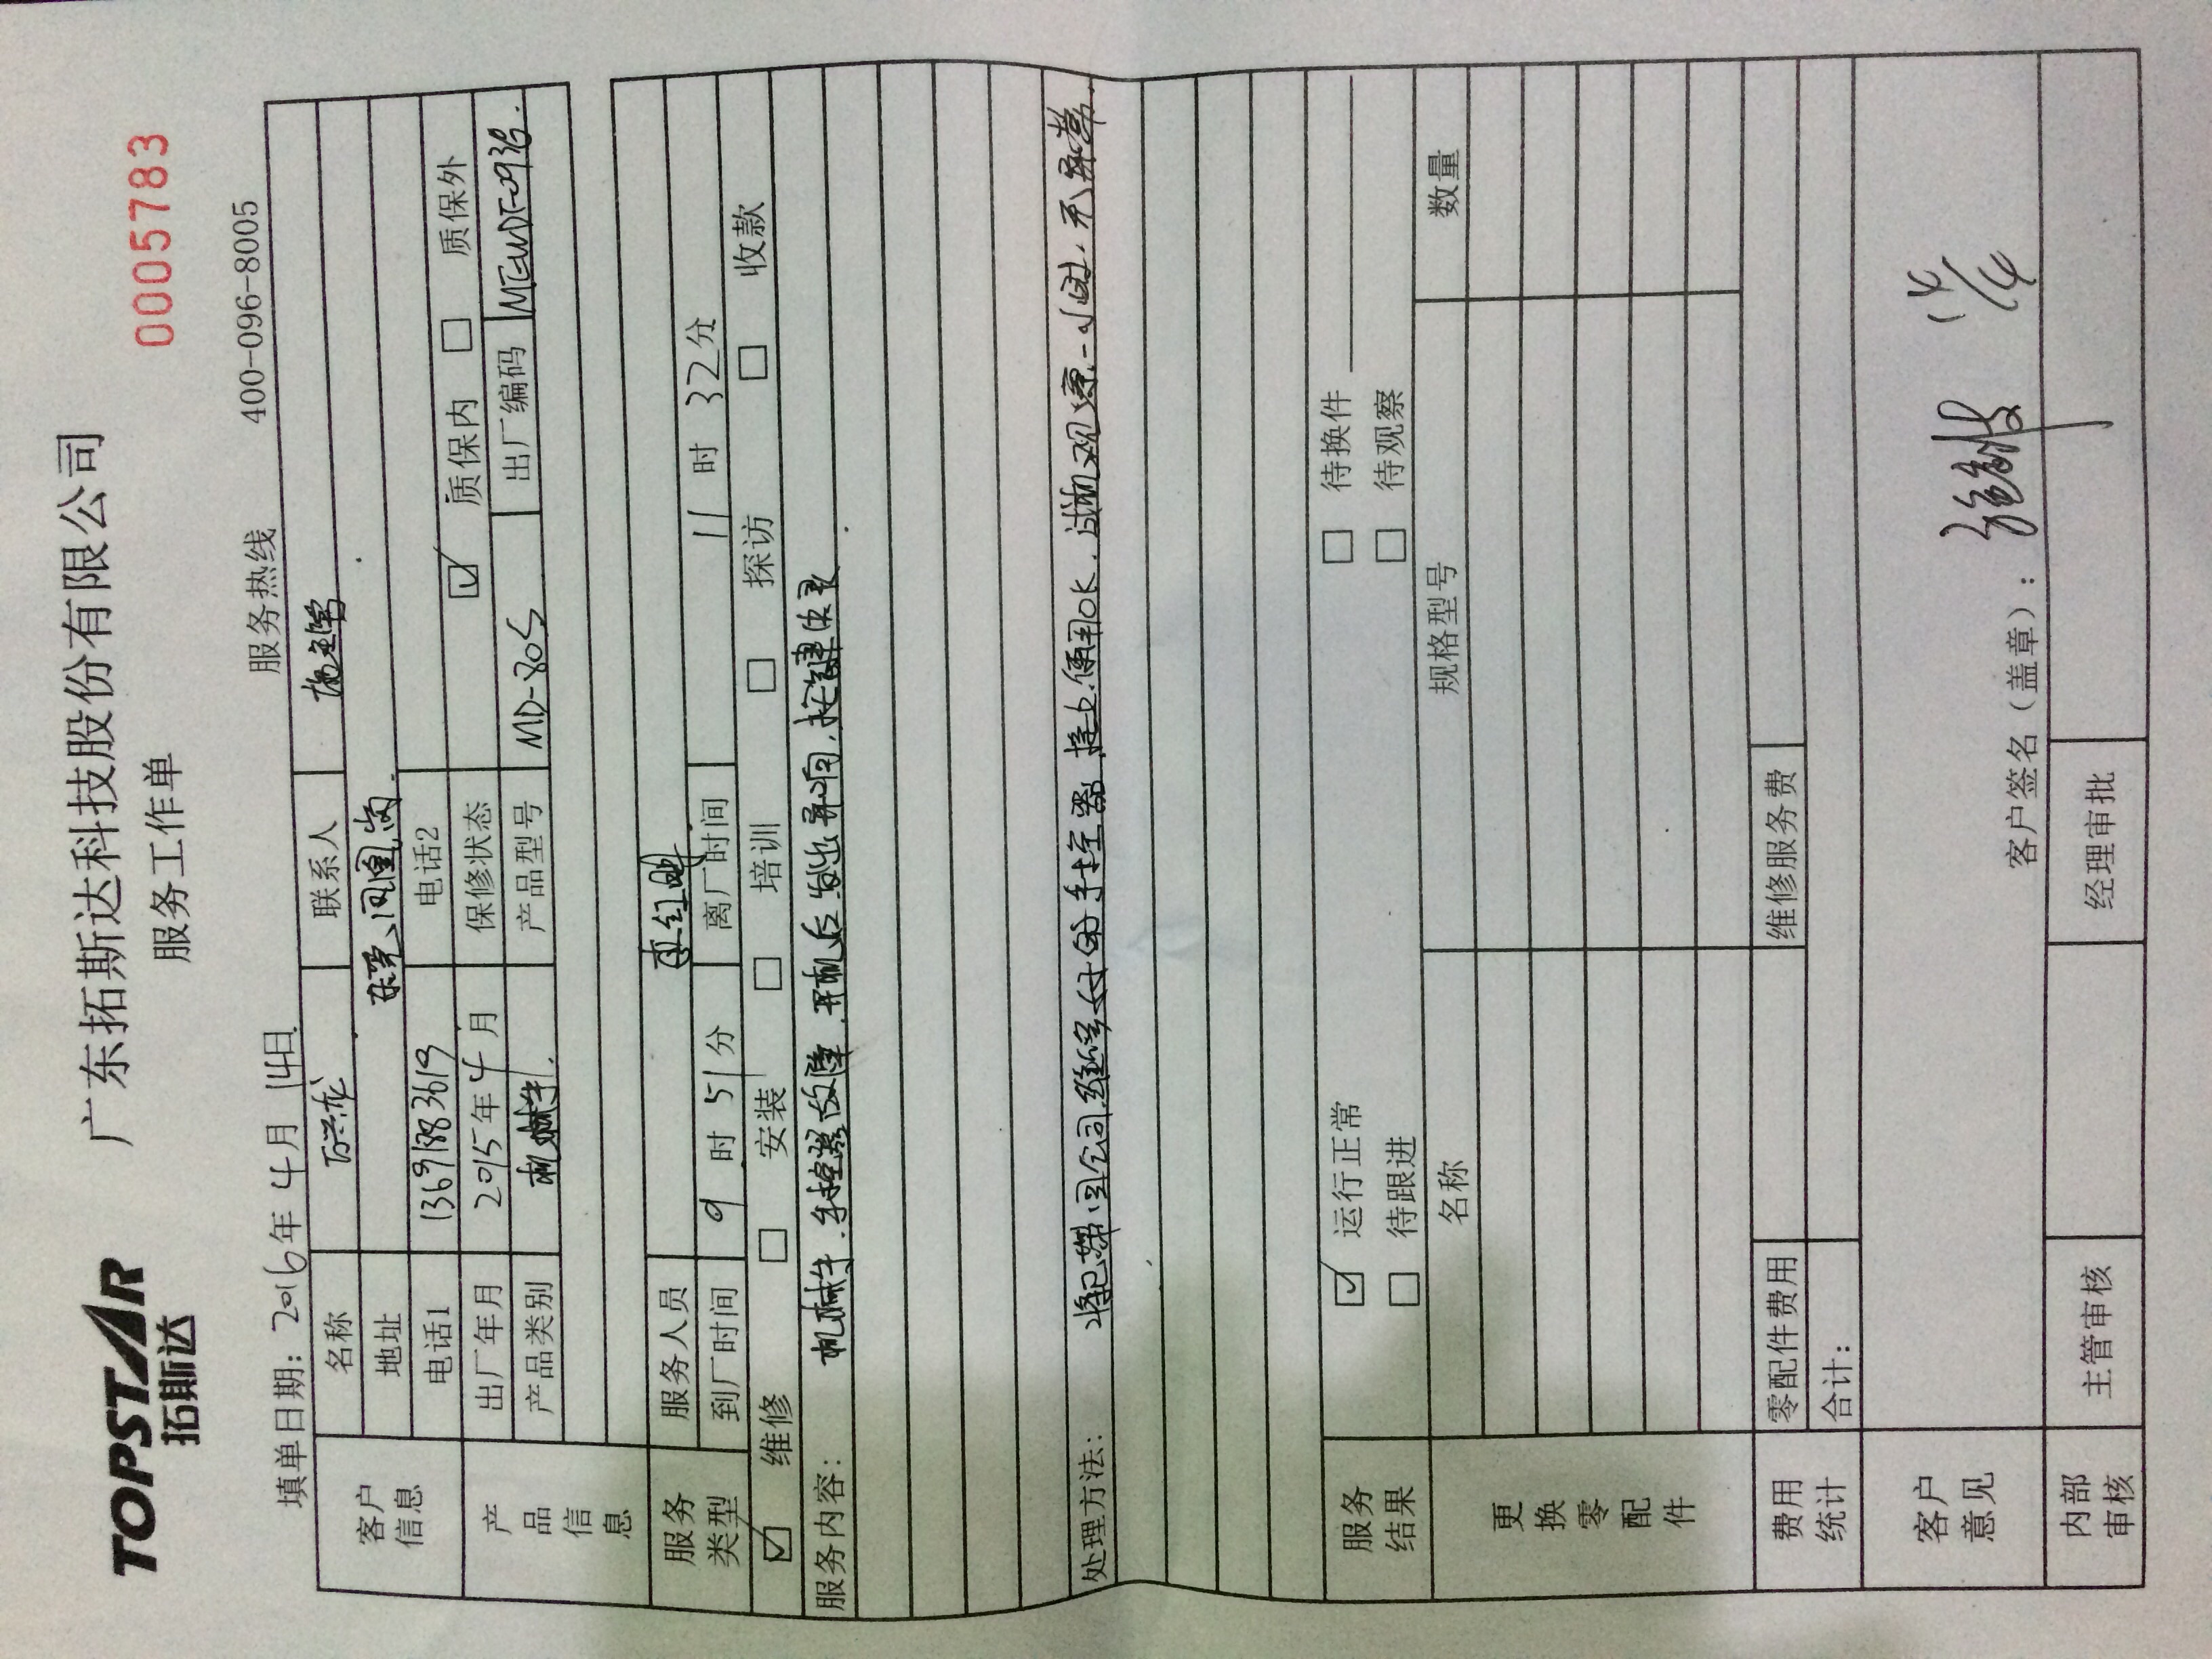 TOPSTAR
拓斯达
广东拓斯达科技股份有限公司
服务工作单
0005783
填单日期：2016年4月14日
服务热线 400-096-8005
客户信息
名称 联系人
地址 凤凰岗
电话1 13691883619 电话2
产品信息
出厂年月 2015年4月 保修状态 ☑ 质保内 □ 质保外
产品类别 机械手 产品型号 MD-80S 出厂编码
服务类型
服务人员
到厂时间 9时51分 离厂时间 11时32分
☑ 维修 □ 安装 □ 培训 □ 探访 □ 收款
服务内容：机械手.手控器故障.开机后发出异响,按键失灵
处理方法：将已带回公司维修好的手控器.接上使用OK.试机观察一小时.无异常.
服务结果
☑ 运行正常 □ 待换件
□ 待跟进 □ 待观察
更换零配件
名称 规格型号 数量
费用统计
零配件费用 维修服务费
合计：
客户意见
客户签名（盖章）：
内部审核
主管审核 经理审批